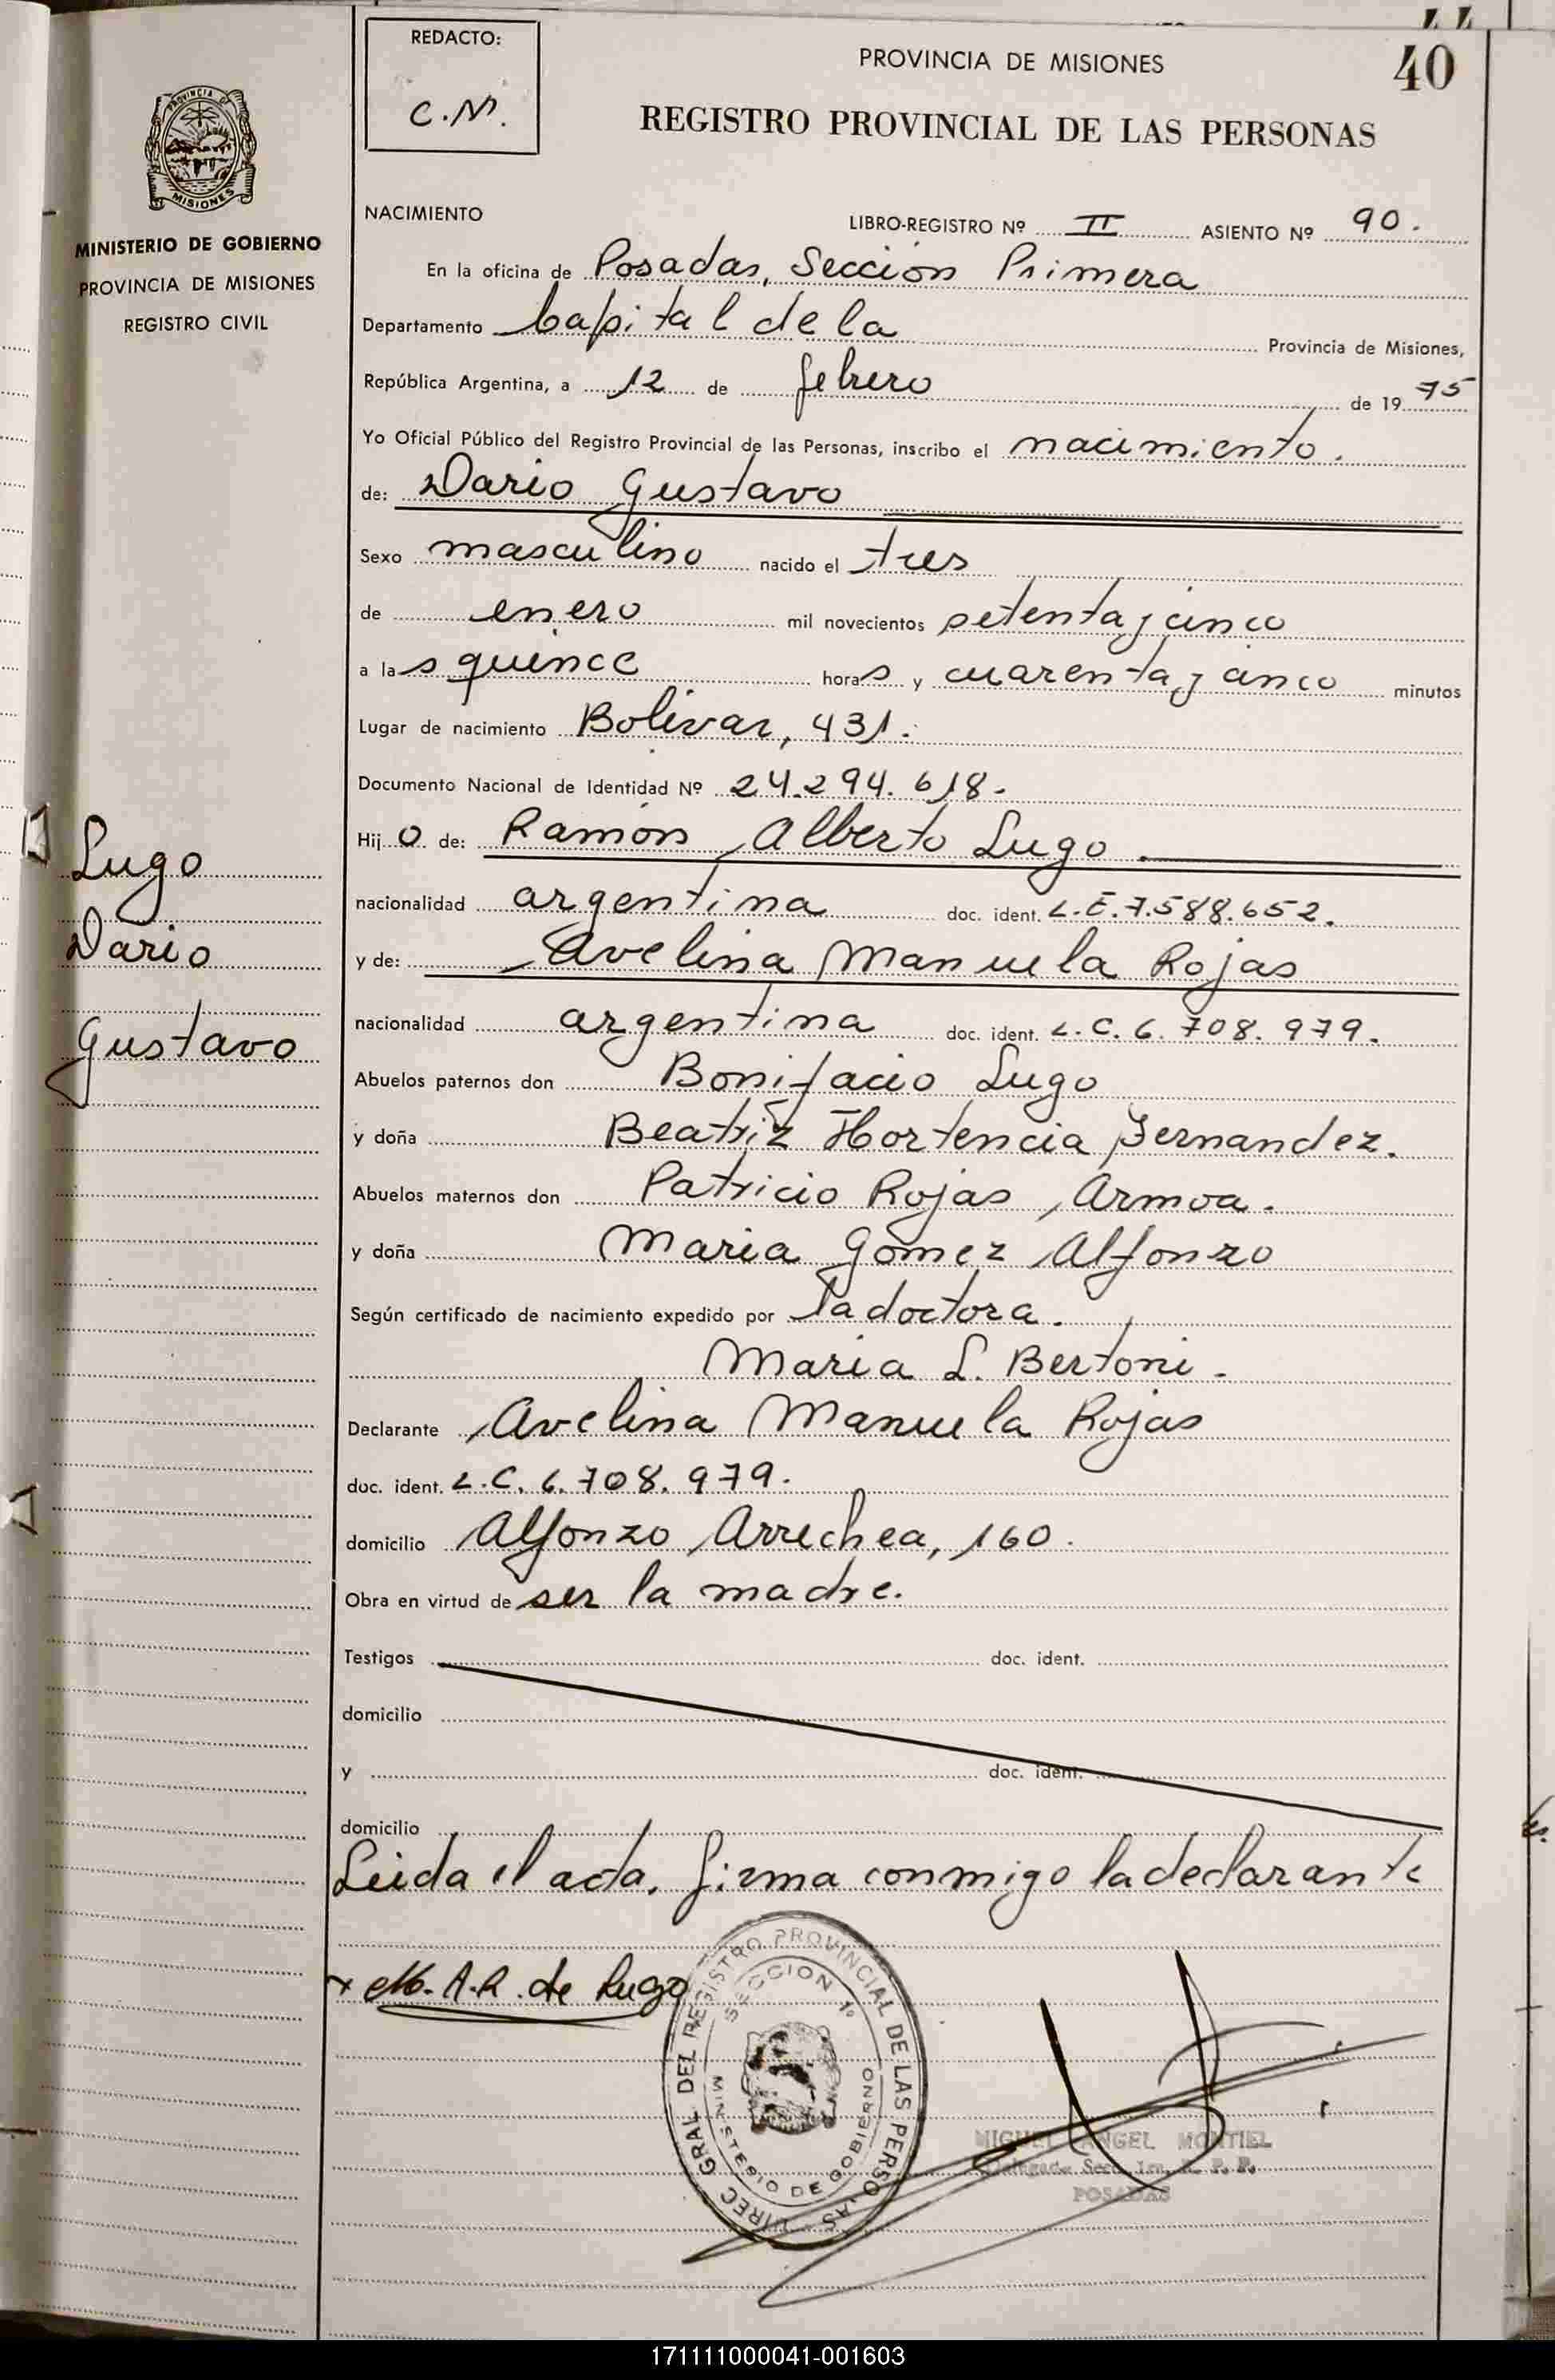 REDACTO:
C.M.
PROVINCIA DE MISIONES
40
REGISTRO PROVINCIAL DE LAS PERSONAS
PROVINCIA DE
MISIONES
MINISTERIO DE GOBIERNO
PROVINCIA DE MISIONES
REGISTRO CIVIL
NACIMIENTO
LIBRO-REGISTRO Nº II ASIENTO Nº 90.
En la oficina de Posadas, Sección Primera
Departamento Capital de la Provincia de Misiones,
República Argentina, a 12 de febrero de 1975
Yo Oficial Público del Registro Provincial de las Personas, inscribo el nacimiento.
de: Dario Gustavo
Sexo masculino nacido el tres
de enero mil novecientos setenta y cinco
a las quince horas y cuarenta y cinco minutos
Lugar de nacimiento Bolivar, 431.
Documento Nacional de Identidad Nº 24.294.618.
Hijo de: Ramón Alberto Lugo.
nacionalidad argentina doc. ident. L.E.7.588.652.
y de: Avelina Manuela Rojas
nacionalidad argentina doc. ident. L.C. 6.708.979.
Abuelos paternos don Bonifacio Lugo
y doña Beatriz Hortencia Fernandez.
Abuelos maternos don Patricio Rojas Armoa.
y doña Maria Gómez Alfonzo
Según certificado de nacimiento expedido por la doctora.
Maria L. Bertoni.
Declarante Avelina Manuela Rojas
doc. ident. L.C. 6.708.979.
domicilio Alfonzo Arrechea, 160.
Obra en virtud de ser la madre.
Testigos doc. ident.
domicilio
y doc. ident.
domicilio
Leida el acta, firma conmigo la declarante
Lugo
Dario
Gustavo
x M.A.R. de Lugo
DIREC. GRAL DEL REGISTRO PROVINCIAL DE LAS PERSONAS
SECCION 1º
MINISTERIO DE GOBIERNO
MIGUEL ANGEL MONTIEL
Delegado Secc. 1ra. R. P. P.
POSADAS
171111000041-001603